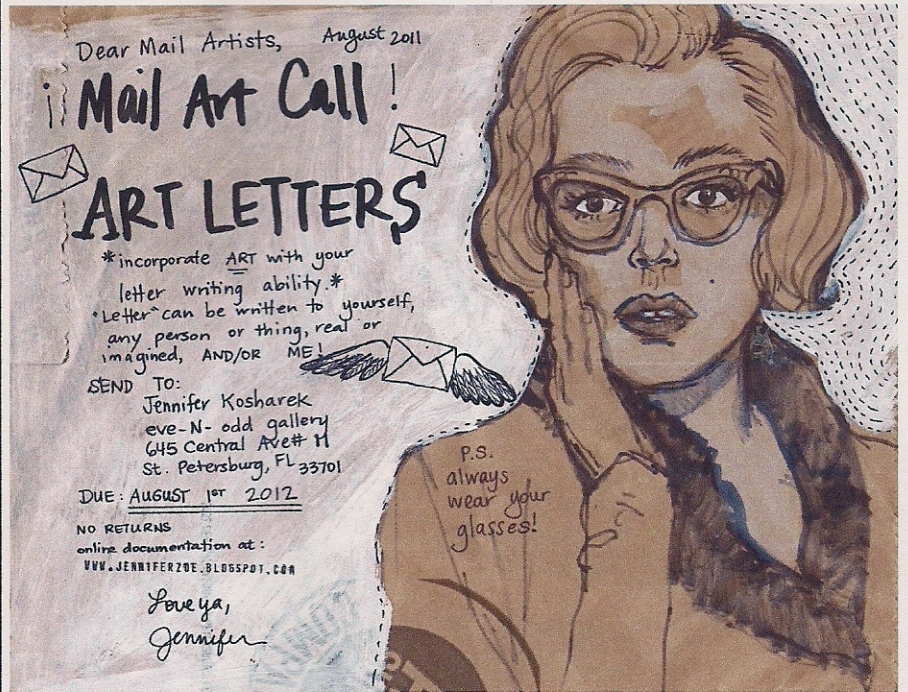 Dear Mail Artists, August 2011
¡¡ Mail Art Call !
ART LETTERS
*incorporate ART with your
letter writing ability.*
"Letter" can be written to yourself,
any person or thing, real or
imagined, AND/OR ME!
SEND TO:
Jennifer Kosharek
eve-N-odd gallery
645 Central Ave# M
St. Petersburg, FL 33701
DUE: AUGUST 1ST 2012
NO RETURNS
online documentation at:
WWW.JENNIFERZOE.BLOGSPOT.COM
Love ya,
Jennifer
P.S.
always
wear your
glasses!